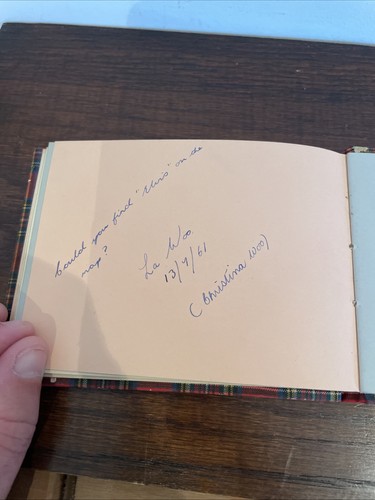 Could you find "Miss" on the
map?
La Woo.
13/9/61
(Christina Woo)